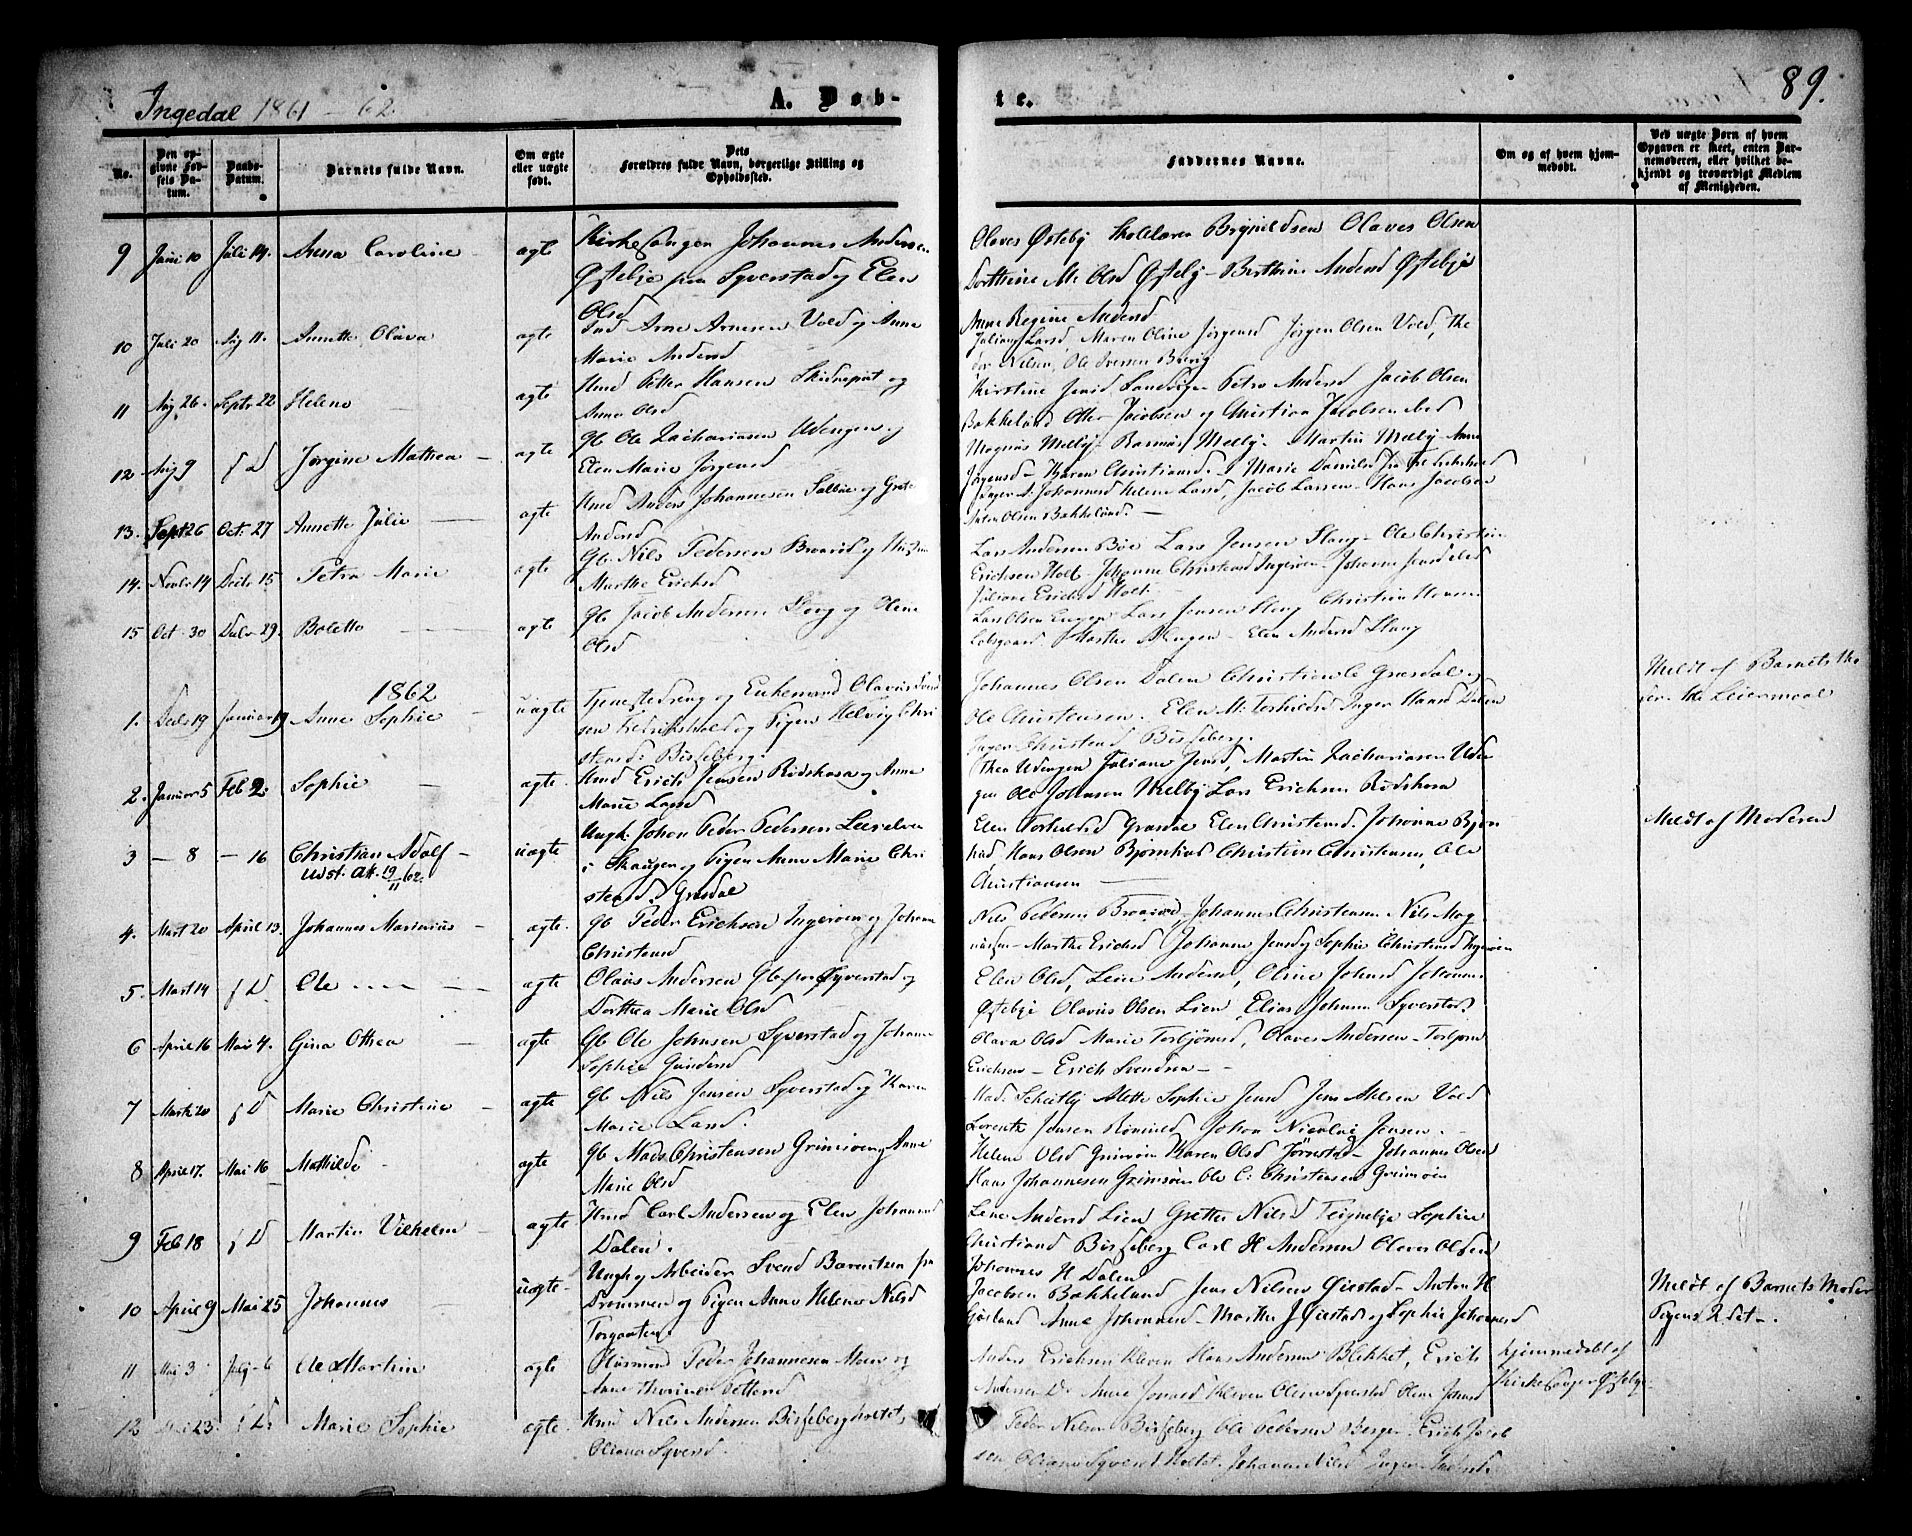 Ingedal 1861 - 62.
A. Døb-
te.
89.
No.
Den op-
givne Fød-
sels Da-
tum.
Daabs-
Datum.
Barnets fulde Navn.
Om ægte
eller uægte
født.
Dets
Forældres fulde Navn, borgerlige Stilling og
Opholdssted.
Faddernes Navne.
Om og af hvem hjem-
medøbt.
Ved uægte Børn af hvem
Opgaven er skeet, enten Bar-
nemoderen, eller hvilket be-
kjendt og troværdigt Medlem
af Menigheden.
9 Juni 10 Juli 14. Anna Caroline ægte
Kirkesanger Johannes Andersen
Østebye paa Syverstad og Elen
Olsd
Olaves Østeby Skolelærer Brynildsen Olaves Olsen
Dorthine M. Olsd Østeby - Berthine Andersd Østebye
Anne Regine Andersd
10 Juli 20 Aug 11. Annette Olava ægte
Ind Arne Arnesen Vold og Anne
Marie Andersd
Juliane Larsd, Maren Oline Jørgensd Jørgen Olsen Vold, The
dor Nilsen, Ole Iversen
11 Aug 26. Septr 22 Helene ægte
Hmd Petter Hansen og
Anne Olsd
Kirstine Jensd Petra Andersd Jacob Olsen
Bakkelund Otter Jacobsen og Christian Jacobsen
12 Aug 9 f D Jørgine Mathea - ægte
Gb Ole Zachariasen Udengen og
Elen Marie Jørgensd
Magnus Melby - Rasmus Melby - Martin Melby - Anne
Jørgensd - Karen Christiansd. - Marie Danielsd fra Fredrikshald
13. Sept 26 Oct. 27 Annette Julie ægte
Hmd Anders Johannesen og Grete
Andersd
Inger A. Johannesd Helene Larsd, Jacob Larsen - Hans Jacobsen
Anton Olsen Bakkelund. -
14. Novbr 14 Decbr 15 Petra Marie ægte
Gb. Nils Pedersen Braarød og
Marthe Erichsd
Lars Andersen Bøe Lars Jensen Slang - Ole Christian
Erichsen Holt - Johanne Christensd Ingerøen - Johanne Jensd
Juliane Erichsd Holt -
15 Oct. 30 Decbr 29. Bolette ægte
Gb Jacob Andersen og Oline
Olsd
Lars Olsen Lars Jensen Slang Christian Hansen
Marthe - Elen Andersd Slang
1862
1. Decbr 19 Januar 19 Anne Sophie - uægte
Tjenestedreng og Enkemand Olavus Svend
sen Fredrikshald og Pigen Helvig Chri
stensd: Bisseberg.
Johannes Olsen Dalen Christian C Græsdal og
Ole Christensen. Elen M. Torkildsd Inger Hansd Dalen
Inger Christensd Bisseberg.
Meldt af Barnets Mo
der. 1ste Leiermaal
2. Januar 5 Feb 2. Sophie - ægte.
Hmd Erich Jensen Rødskasa og Anne
Marie Larsd
Thea Udengen Juliane Jensd, Martin Zachariasen Uden
gen Ole Johnsen Melby Lars Erichsen Rødskasa
3 - 8 - 16 Christian Adolf - uægte
Udst. Att. 19/11 62.
Ungk. Johan Peder Pedersen
i Skaugen og Pigen Anne Marie Chri
stensd. Græsdal
Elen Torkildsd Græsdal Elen Christensd. Johanne Bjørn
stad, Hans Olsen Bjørnstad Christian Christensen, Ole
Christiansen
Meldt af Moderen
4. Mart 20 April 13. Johannes Marinius - ægte.
gb Peder Erichsen Ingerøen og Johanne
Christensd
Nils Pedersen Braarød, Johannes Christensen Nils Mag
nusen - Marthe Erichsd Johanne Jensd og Sophie Christensd Ingerøen
5. Mart 14 f D. Ole ægte
Olaus Andersen Gb paa Syverstad og
Dorthea Marie Olsd
Elen Olsd, Lene Andersd, Oline Johnsd Johannes
Østebye Olavus Olsen Lien, Elias Johnsen Syverstad.
6 April 16 Mai 4. Gina Othea ægte
Gb Ole Johnsen Syverstad og Johanne
Sophie Gundersd
Olava Olsd Marie Torbjørnsd, Olaves Andersen - Torbjørn
Erichsen - Erich Svendsen -
7 Mart 20 f D Marie Christine - ægte
gb Nils Jensen Syverstad og Karen
Marie Larsd.
Mads Skeitby Alette Sophie Jensd Jens Nilsen Vold
Lorentz Jensen Johan Nicolai Jensen. -
8 April 17. Mai 16 Mathilde ægte
gb Mads Christensen Grimsøen og Anne
Marie Olsd
Helene Olsd Grimsøen Karen Olsd Jørnstad - Johannes Olsen
Hans Johannesen Grimsøen Ole C: Christensen Grimsøen
9 Feb 18 f D Martin Vilhelm ægte
Hmd Carl Andersen og Elen Johannesd
Dalen.
Lene Andersd Lien Grethe Nilsd Teignebye Sophie
Christiansd Bisseberg Carl H Andersen Olaves Olsen
Johannes H Dalen
10 April 9 Mai 25 Johannes uægte -
Ungk og Arbeider Svend Berntsen fra
Drammen og Pigen Anne Helene Nilsd
Torgauten.
Jacobsen Bakkelund Jens Nilsen Ørestad - Anton H
Gjøslund Anne Johannesd - Marthe J Ørestad og Sophie Johannesd
Meldt af Barnets Moder
Pigens 2det -.
11 Mai 3 Julj 6 Ole Martin ægte
Huusmand Peder Johannesen Moen og
Anne Thorine Pettersd
Anders Erichsen Kleven Hans Andersen Blekket, Erich
Andersen Do Anne Jonasd Kleven Oline Syverstad Oline Jensd
hjemmedøbt af
Kirkesanger Østebye
12 Mai 23. f D. Marie Sophie ægte.
Hmd Nils Andersen Bissebergholtet,
Oliana Syversd.
Peder Nilsen Bisseberg Ole Pedersen Berger. Erich Jacob
sen Oliana Syversd Holtet. Johanne Nilsd Inger Andersd